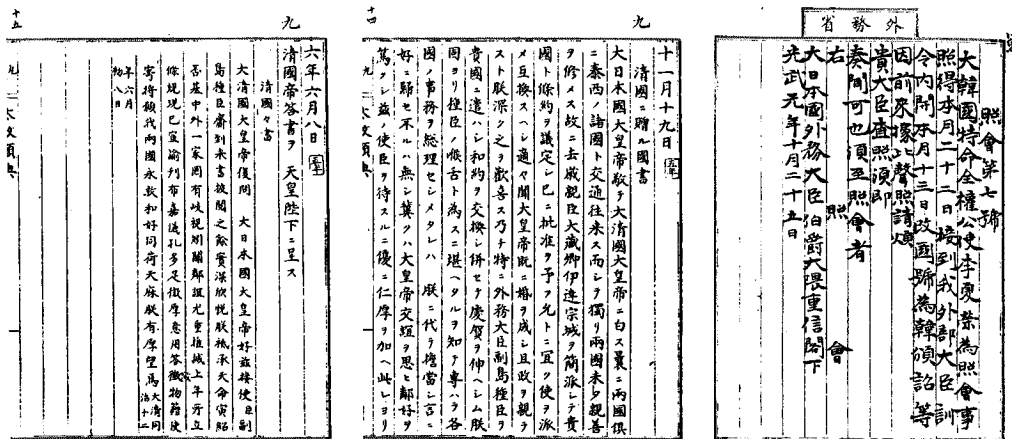 外務省
照會第七號
大韓國特命全權公使李夏榮為照會事
照得本月二十二日接到我外部大臣訓
令內開本月十三日改國號為韓頒詔等
因前來據此聲照請煩
貴大臣查照須即
奏聞可也須至照會者
右 照 會
大日本國外務大臣伯爵大隈重信閣下
光武元年十月二十五日
九
十一月十九日 五年
清國ニ贈ル國書
大日本國大皇帝敬テ大清國大皇帝ニ白ス曩ニ兩國俱
ニ泰西ノ諸國ト交通往来ス而シテ獨リ兩國未タ親善
ヲ修メス故ニ去歳親臣大藏卿伊達宗城ヲ簡派シテ貴
國ト條約ヲ議定シ已ニ批准ヲ予フ允トニ宜ク使ヲ派
メ互換スヘシ適々聞大皇帝既ニ婚ヲ成シ且政ヲ親ラ
スト朕深ク之ヲ歡喜ス乃チ特ニ外務大臣副島種臣ヲ
貴國ニ遣ハシ和約ヲ交換シ併セテ慶賀ヲ伸ヘシム朕
固ヨリ種臣ノ為スニ堪ヘタルヲ知テ專ハラ各
國ノ事務ヲ総理セシメタレハ 朕ニ代テ擔當シ言ニ
好ニ歸セ不ルハ無シ冀クハ大皇帝交誼ヲ思ヒ鄰好ヲ
篤ウシ茲ノ使臣ヲ待スルニ優ニ仁厚ヲ加ヘ此レヨリ
九 太政類典
十四
九
六年六月八日 五年
清國帝答書ヲ 天皇陛下ニ呈ス
清國々書
大清國大皇帝復問 大日本國大皇帝好茲接使臣副
島種臣齎到来書披閱之餘實深欣悅朕祗承天命寅紹
丕基中外一家罔有歧視別關鄰誼尤重推誠上年所立
條規現已宣諭刊布嘉儀孔多足徵厚意用答微物藉使
寄將願我兩國永敦和好同荷天庥朕有厚望焉 大清同治十二
年六月初八日
九 太政類典
十五